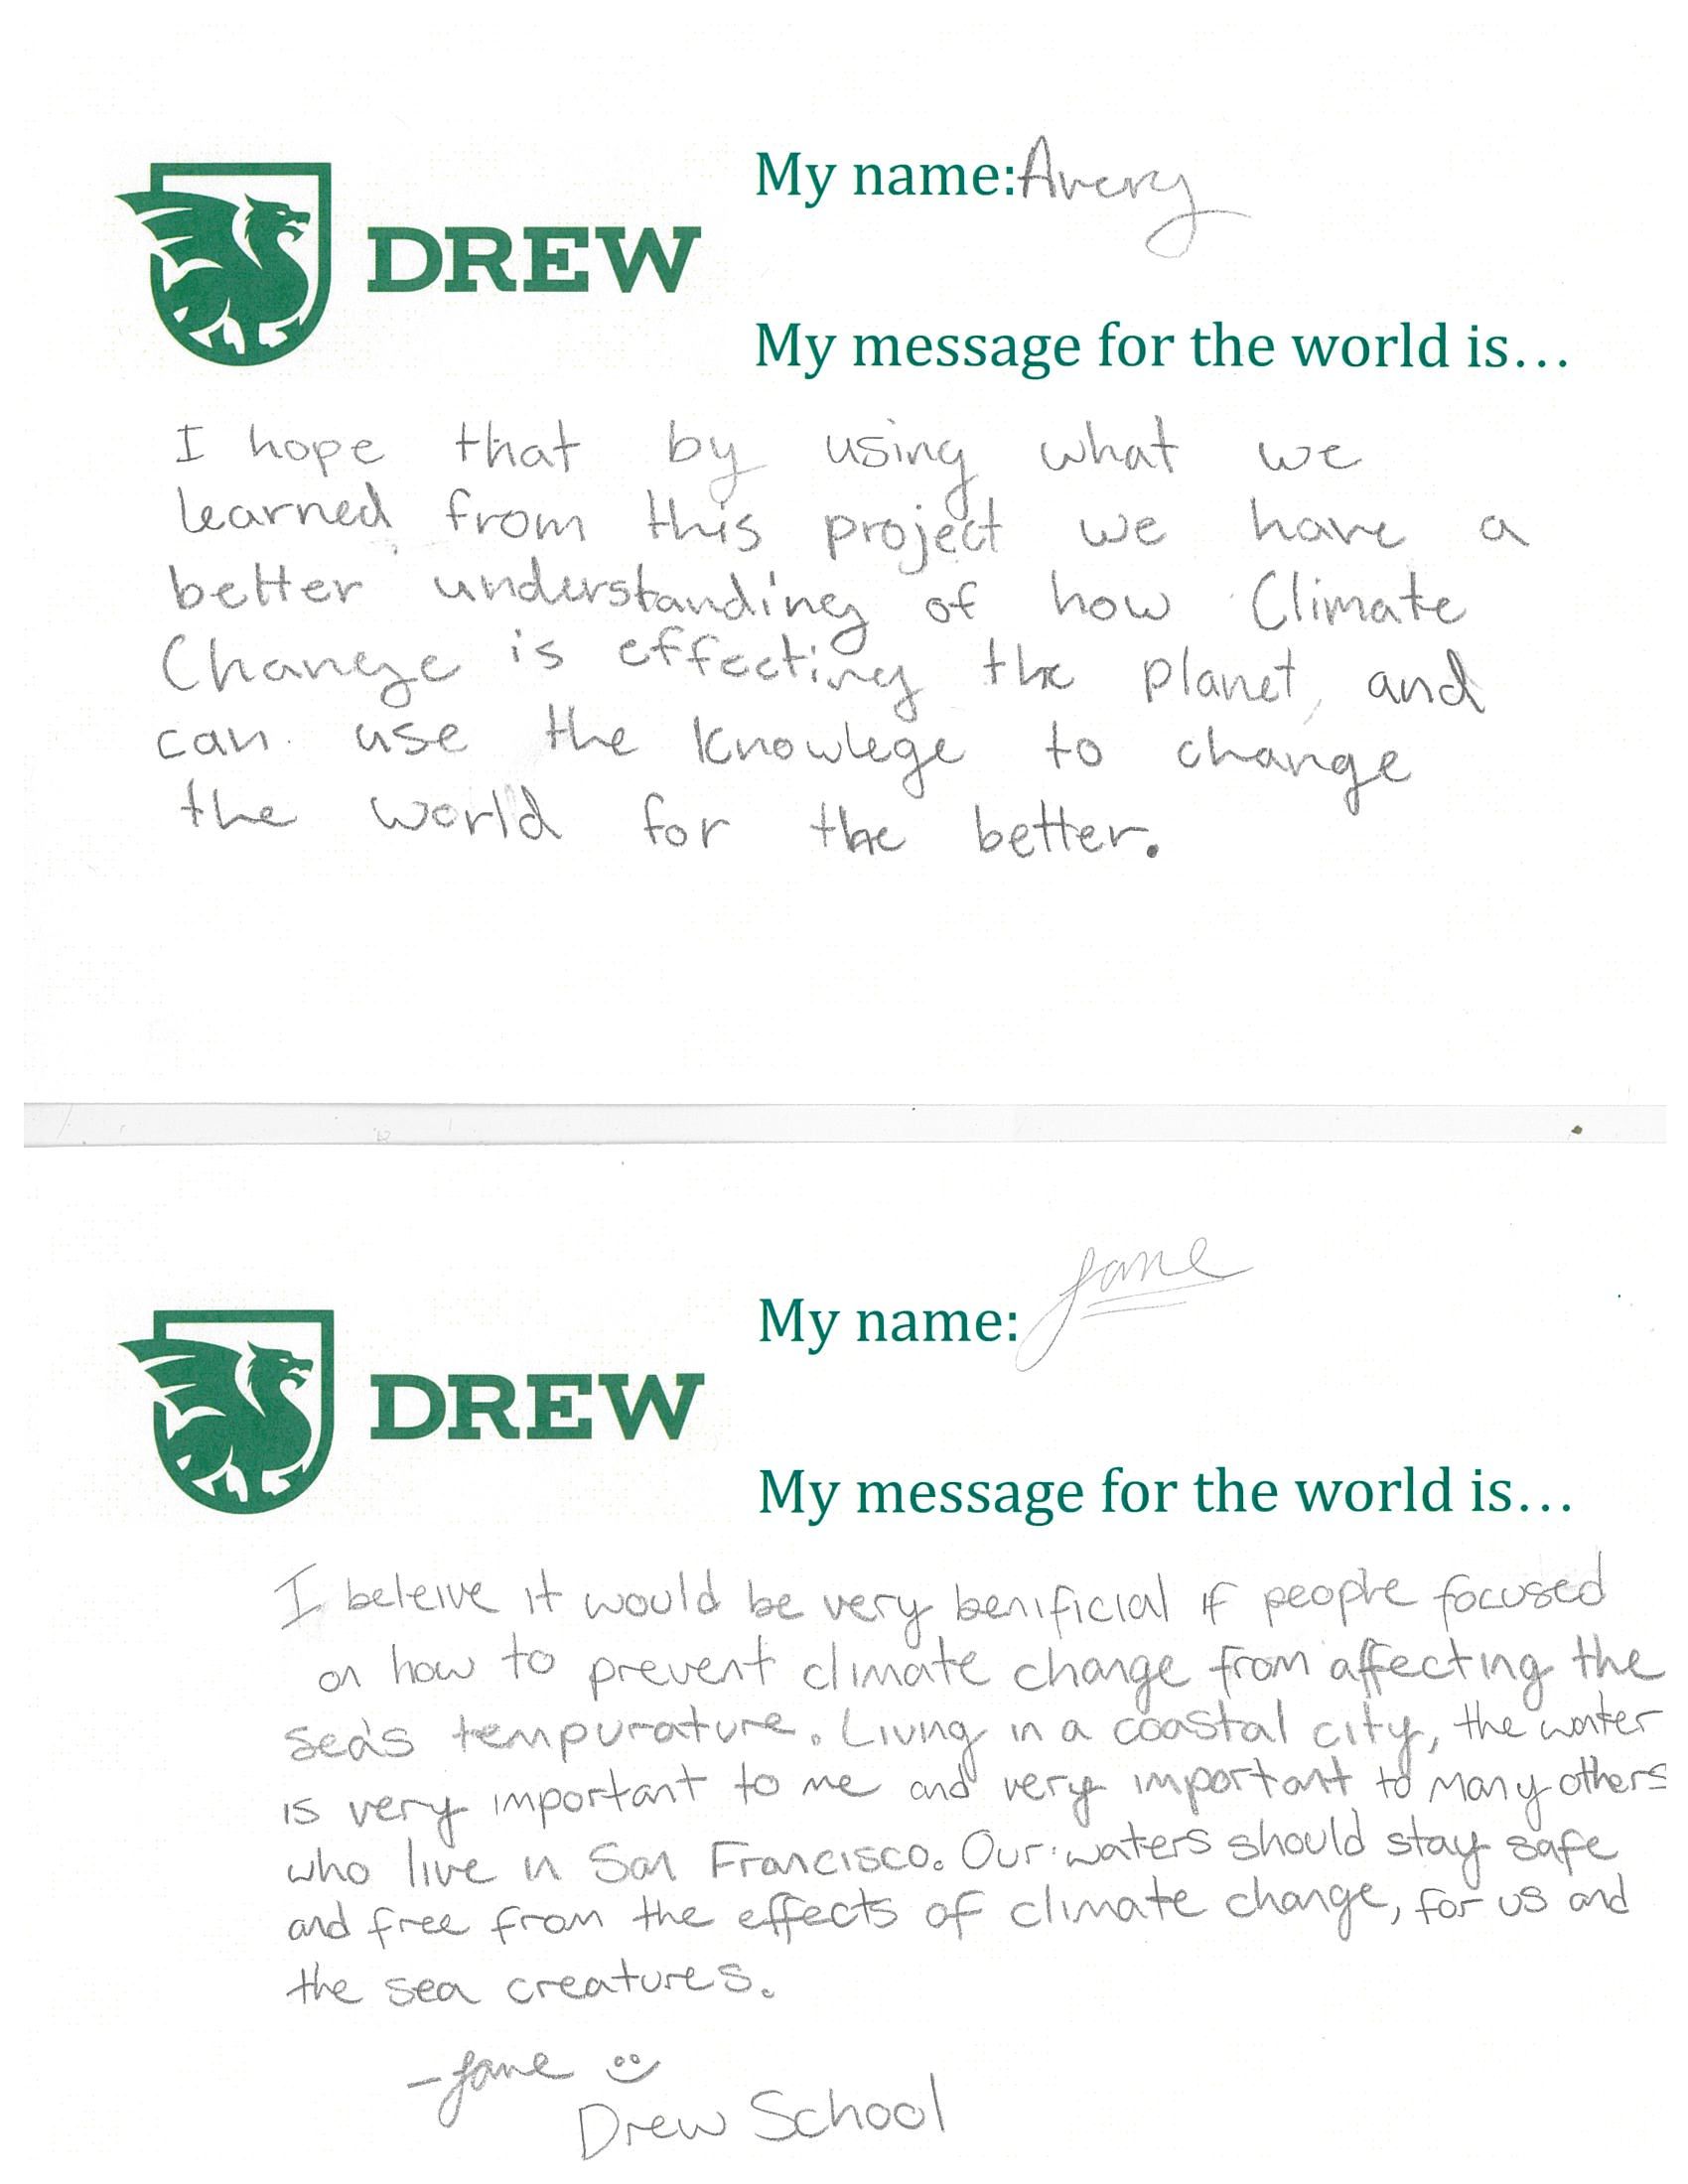 My name: Avery
DREW
My message for the world is...
I hope that by using what we
learned from this project we have a
better understanding of how Climate
Change is effecting the planet, and
can use the knowlege to change
the world for the better.
My name: Jane
DREW
My message for the world is...
I beleive it would be very benificial if people focused
on how to prevent climate change from affecting the
sea's tempurature. Living in a coastal city, the water
is very important to me and very important to many others
who live in San Francisco. Our waters should stay safe
and free from the effects of climate change, for us and
the sea creatures.
- Jane
Drew School